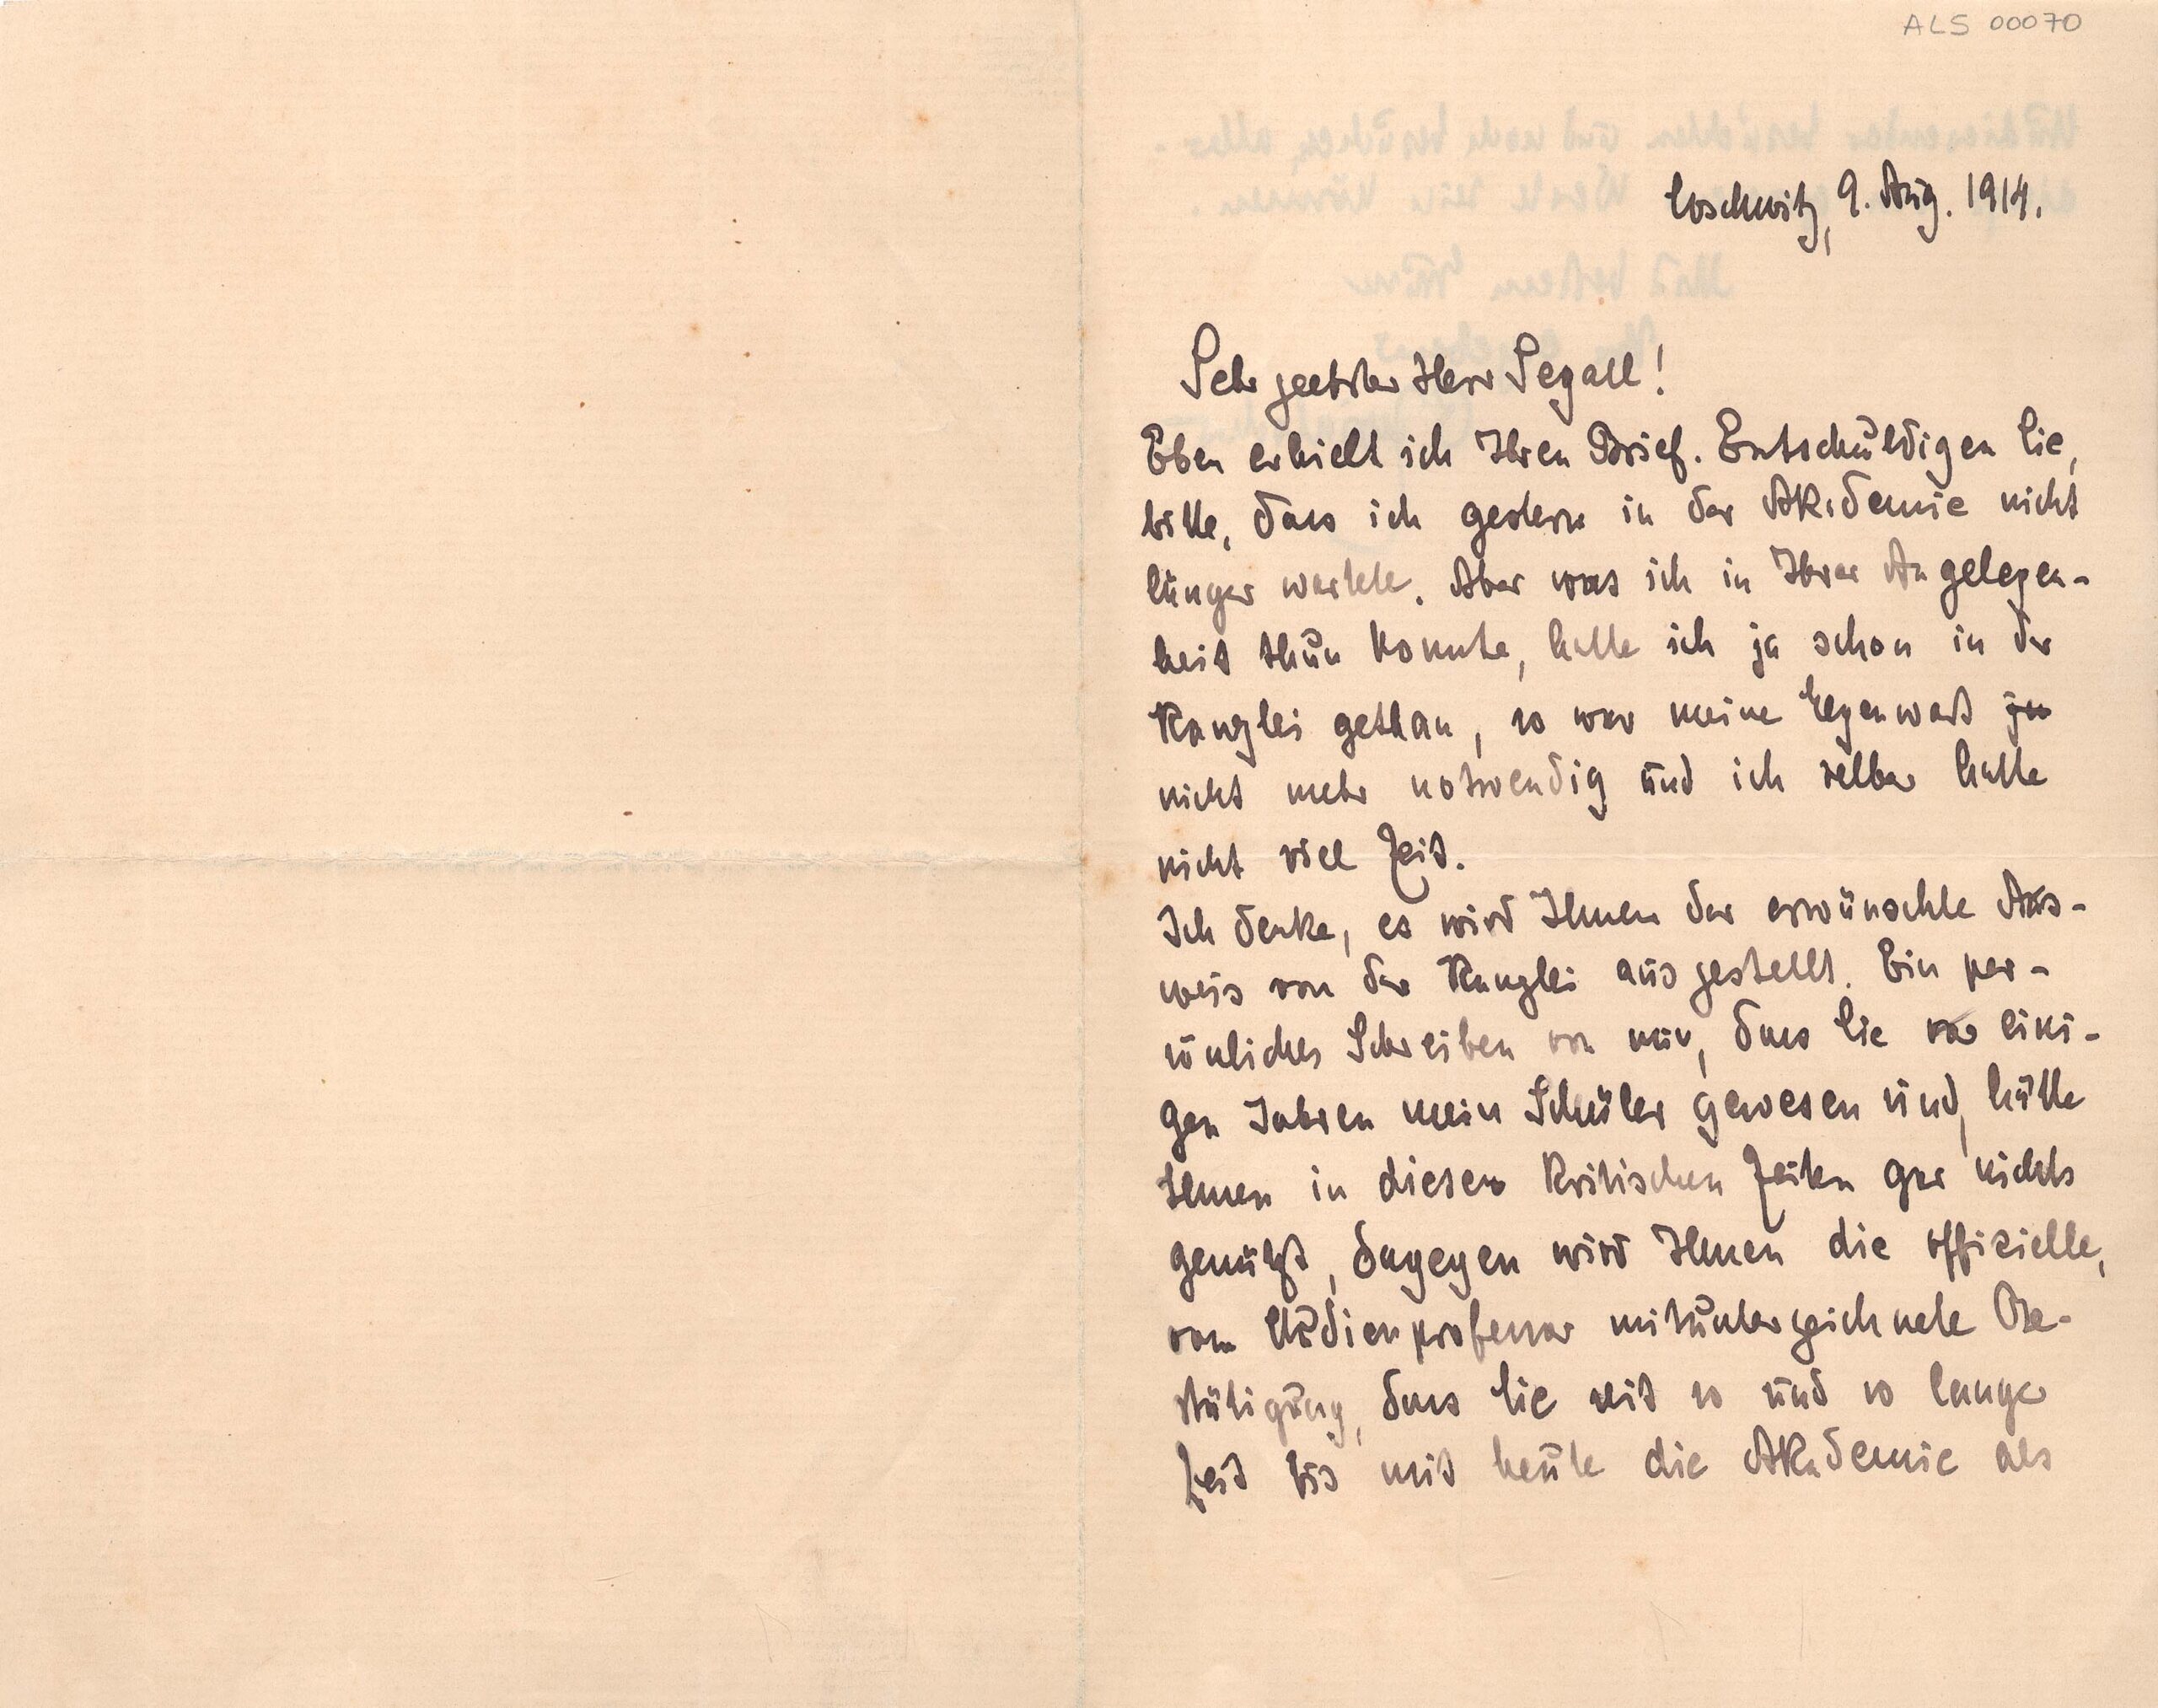 ALS 00070
Loschwitz, 9. Aug. 1914.
Sehr geehrter Herr Segall!
Eben erhielt ich Ihren Brief. Entschuldigen Sie,
bitte, dass ich gestern in der Akademie nicht
länger wartete. Aber was ich in Ihrer Angelegen-
heit thun konnte, hatte ich ja schon in der
Kanzlei gethan, so war meine Gegenwart ja
nicht mehr notwendig und ich selber hatte
nicht viel Zeit.
Ich denke, es wird Ihnen der erwünschte Aus-
weis von der Kanzlei ausgestellt. Ein per-
sönliches Schreiben von mir, dass Sie vor eini-
gen Jahren mein Schüler gewesen sind, hätte
Ihnen in diesen kritischen Zeiten gar nichts
genützt, dagegen wird Ihnen die offizielle,
vom Studienprofessor mitunterzeichnete Be-
stätigung, dass Sie seit so und so langer
Zeit bis mit heute die Akademie als